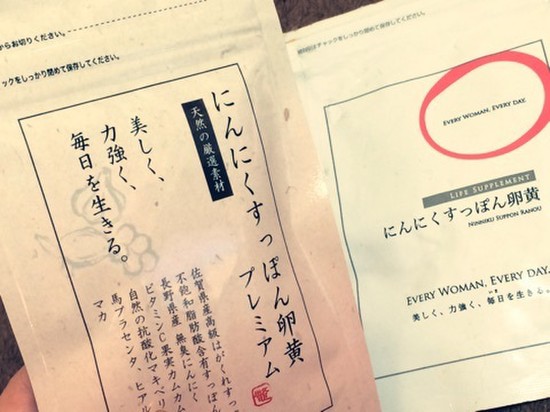 からお切りください。
ックをしっかり閉めて保存してください。
にんにくすっぽん卵黄
プレミアム
天然の厳選素材
美しく、
力強く、
毎日を生きる。
佐賀県産高級はがくれすっ
不飽和脂肪酸含有すっぽん
長野県産 無臭にんにく
ビタミンC果実カムカム
自然の抗酸化マキベリ
馬プラセンタ、ヒアル
マカ
チャックをしっかり閉めて保存してください。
EVERY WOMAN, EVERY DAY.
LIFE SUPPLEMENT
にんにくすっぽん卵黄
NINNIKU SUPPON RANOU
EVERY WOMAN, EVERY DAY.
美しく、力強く、毎日を生きる。